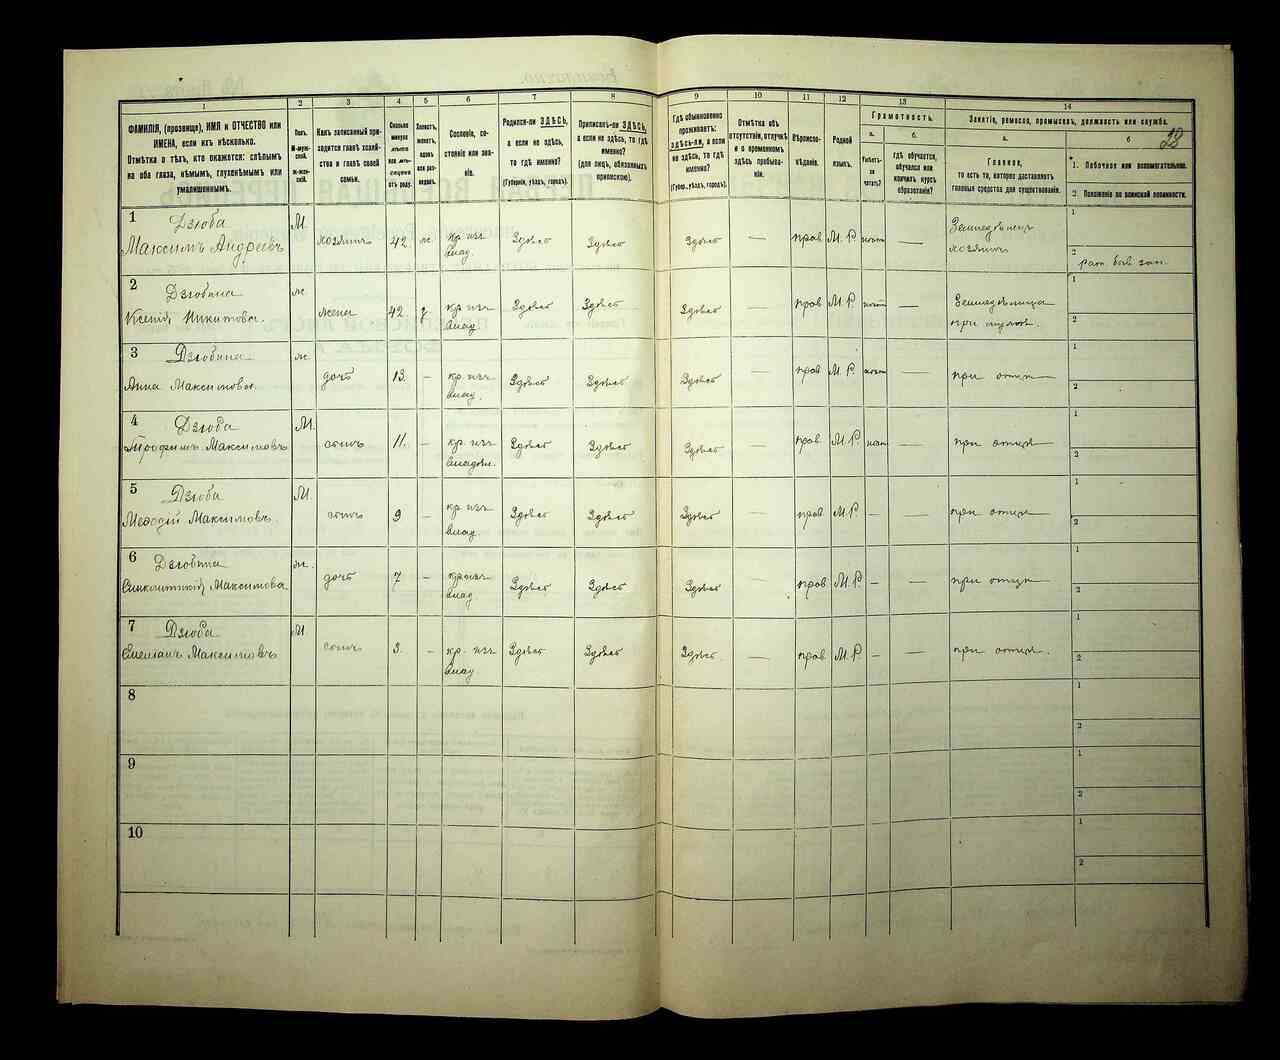 1 2 3 4 5 6 7 8 9 10 11 12 13 14
ФАМИЛІЯ, (прозвище), ИМЯ и ОТЧЕСТВО или
ИМЕНА, если ихъ нѣсколько.
Отмѣтка о тѣхъ, кто окажется: слѣпымъ
на оба глаза, нѣмымъ, глухонѣмымъ или
умалишеннымъ.
Полъ.
М-муж-
ской.
Ж-жен-
скій.
Какъ записанный при-
ходится главѣ хозяй-
ства и главѣ своей
семьи.
Сколько
минуло
лѣтъ
или мѣ-
сяцевъ
отъ роду.
Холостъ,
женатъ,
вдовъ
или раз-
веденъ.
Сословіе, со-
стояніе или зва-
ніе.
Родился-ли ЗДѢСЬ,
а если не здѣсь,
то гдѣ именно?
(Губернія, уѣздъ, городъ).
Приписанъ-ли ЗДѢСЬ,
а если не здѣсь, то гдѣ
именно?
(для лицъ, обязанныхъ
припискою).
Гдѣ обыкновенно
проживаетъ:
здѣсь-ли, а если
не здѣсь, то гдѣ
именно?
(Губер., уѣздъ, городъ).
Отмѣтка объ
отсутствіи, отлучкѣ
и о временномъ
здѣсь пребыва-
ніи.
Вѣроиспо-
вѣданіе.
Родной
языкъ.
Грамотность.
а. б.
Умѣетъ-
ли
читать?
гдѣ обучается,
обучался или
кончилъ курсъ
образованія?
Занятіе, ремесло, промыселъ, должность или служба.
28
а. б
Главное,
то есть то, которое доставляетъ
главныя средства для существованія.
1. Побочное или вспомогательное.
2. Положеніе по воинской повинности.
1 Дзюба М. 1
Максимъ Андреевъ хозяинъ 42 ж. кр. изъ влад. Здѣсь Здѣсь Здѣсь — прав М. Р. — Земледѣлецъ хозяинъ 2
2 Дзюбина ж. 1
Ксенія Никитова жена 42 з. кр изъ влад. Здѣсь Здѣсь Здѣсь — прав М. Р. — при мужѣ. 2
3 Дзюбина ж. 1
Анна Максимова дочь 13. — кр. изъ влад. Здѣсь Здѣсь Здѣсь — прав М. Р. — при отцѣ 2
4 Дзюба М. 1
Трофимъ Максимовъ сынъ 11. — кр. изъ Здѣсь Здѣсь Здѣсь — прав М. Р. — при отцѣ 2
5 Дзюба М. 1
Меѳодій Максимовъ. сынъ 9 — кр. изъ влад. Здѣсь Здѣсь Здѣсь — прав М. Р. — — при отцѣ 2
6 Дзюбина ж. 1
Максимова дочь 7 — кр изъ влад Здѣсь Здѣсь Здѣсь — прав М. Р. — — при отцѣ 2
7 Дзюба М. 1
Максимовъ сынъ 3. — кр. изъ влад. Здѣсь Здѣсь Здѣсь — прав М. Р. — — при отцѣ. 2
8 1
2
9 1
2
10 1
2